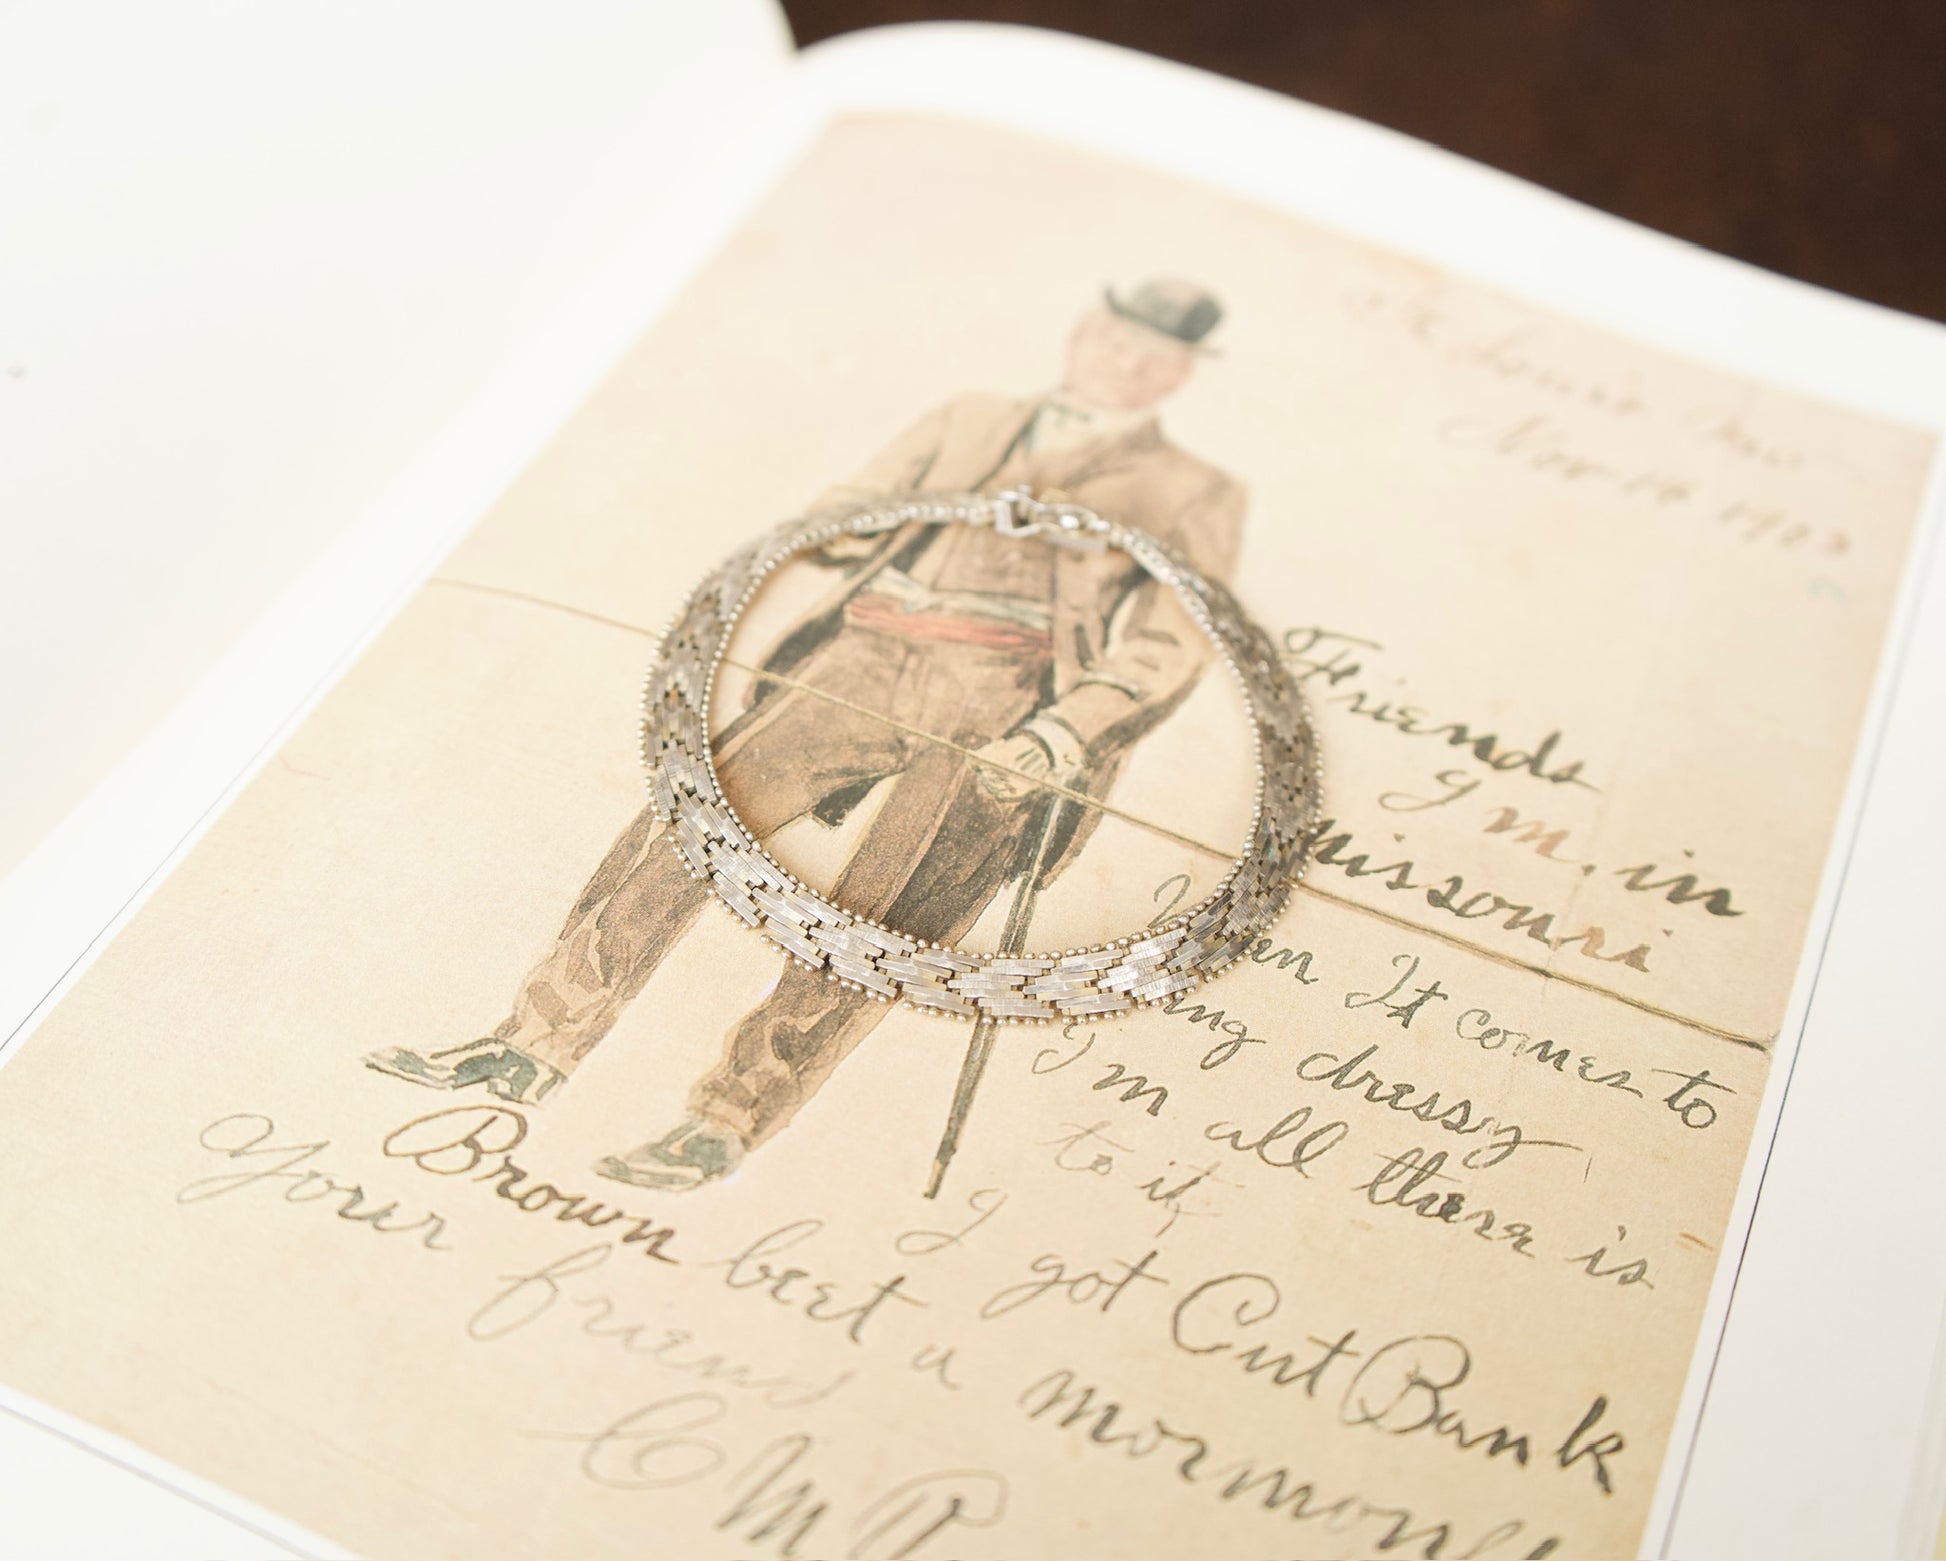 St Louis Mo
Nov 14 1903
Friends
I m. in
missouri
When It comes to
ing dressy
I'm all there is
to it
I got Cut Bank
Brown beet a mormon
Your friend
C M R